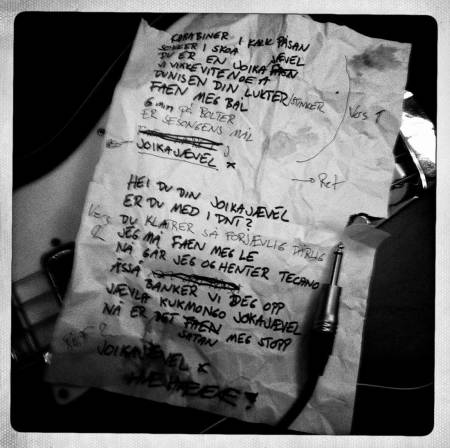 KARABINER I KALK PÅSAN
SOKKER I SKOA
DU ER EN JOIKAJÆVEL FAEN
VI VIKKE VITE NOE A
DUNISEN DIN LUKTER/STINKER
FAEN MEG BÆL
6 mm på BOLTER
ER SESONGENS MÅL
Vers 1
JOIKAJÆVEL x
→ Ref
HEI DU DIN JOIKAJÆVEL
ER DU MED I DNT?
DU KLATRER SÅ FORJÆVLIG DÅRLIG
Vers 2
JEG MÅ FAEN MEG LE
NÅ GÅR JEG OG HENTER TECHNO
ÅSSÅ BANKER VI DEG OPP
JÆVLA KUKMONGO JOKAJÆVEL
NÅ ER DET FAEN MEG STOPP
SATAN
Ref 2
JOIKAJÆVEL x